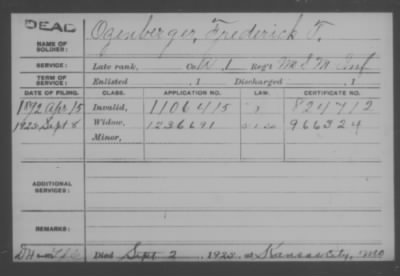 DEAD
Ogenberger, Frederick T.
NAME OF SOLDIER:
SERVICE: Late rank, Co. Reg't Inf
TERM OF SERVICE: Enlisted , 1 Discharged , 1
DATE OF FILING. CLASS. APPLICATION NO. LAW. CERTIFICATE NO.
1892 Apr 15 Invalid, 1106415 824712
1925 Sept 8 Widow, 1236691 966324
Minor,
ADDITIONAL SERVICES:
REMARKS:
Died Sept. 2, 1925, at Kansas City, MO